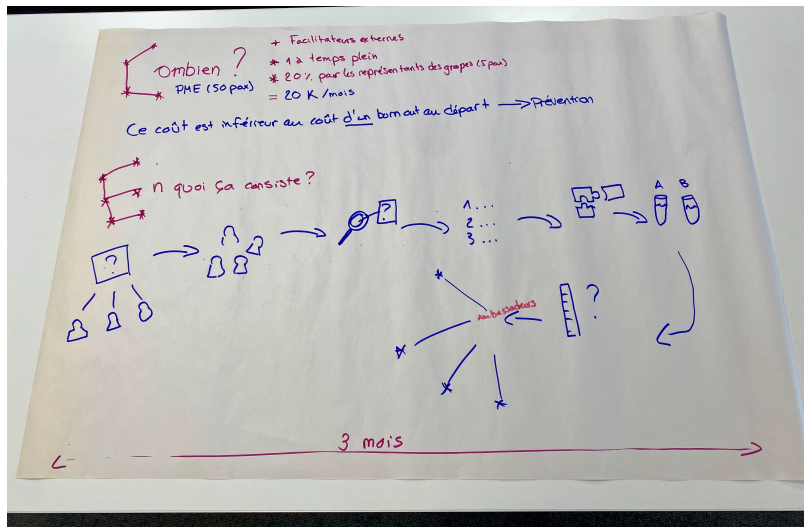 Combien ?
PME (50 pax)
+ Facilitateurs externes
* 1 à temps plein
* 20% par les représentants des gropes (5 pax)
= 20 K /mois
Ce coût est inférieur au coût d'un born out au départ → Prévention
En quoi ça consiste ?
?
?
1 ...
2 ...
3 ...
A B
Ambassadeurs
?
3 mois